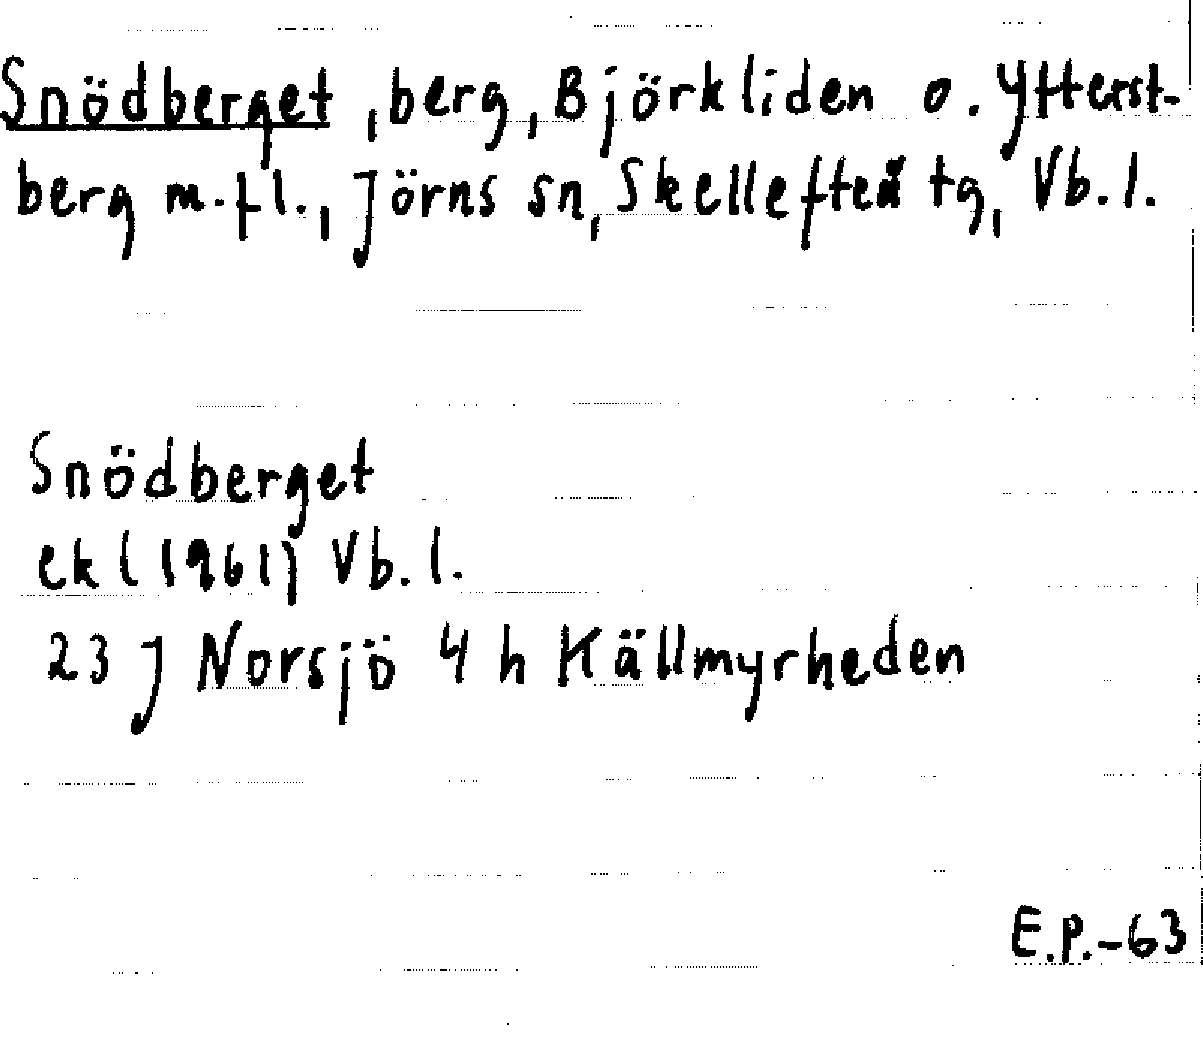 Snödberget, berg, Björkliden o. Ytterst-
berg m.fl., Jörns sn, Skellefteå tg, Vb.l.
Snödberget
ek (1961) Vb.l.
23 J Norsjö 4 h Källmyrheden
E.P.-63